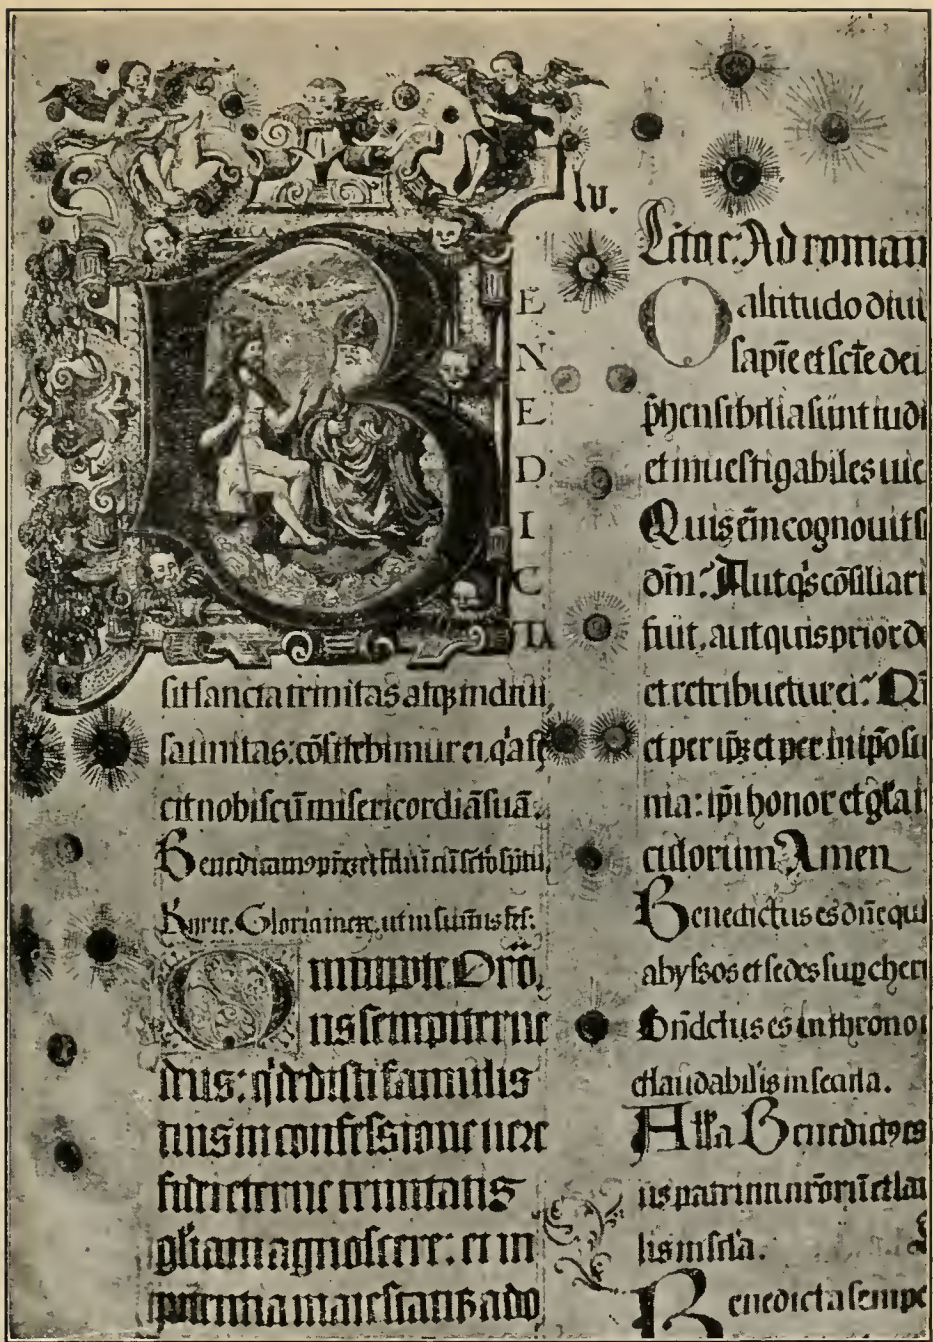 lv.
B
E
N
E
D
I
C
TA
sit sancta trinitas atqꝫ indiui
sa unitas: cõfitebimur ei. q̇a fe
cit nobiscũ misericordiã suã.
Kyrie. Gloria in
Oro.
ns sempiterne
deus: q̇ dedisti famulis
tuis in confessione uere
fidei eterne trinitatis
gl̃iam agnoscere: et in
potentia maiestatis ado
Ad roman
O altitudo diui
sapĩe et sciẽ dei
p̃hensibilia sunt iudi
et inuestigabiles uie
Quis eĩm cognouit s
dñi? Aut q̇s cõsiliari
fuit, aut quis prior de
et retribuetur ei? Qm̃
et per ip̃ꝫ et per in ip̃o su
nia: ip̃i honor et gl̃a in
culorum Amen
Benedictus es dñe qui
abyssos et sedes sup cheru
Bñdctus es in throno
et laudabilis in secula.
All̃a Benedictꝰ es
us patrum nr̃orũ et lau
lis in scl̃a.
Benedicta sempe